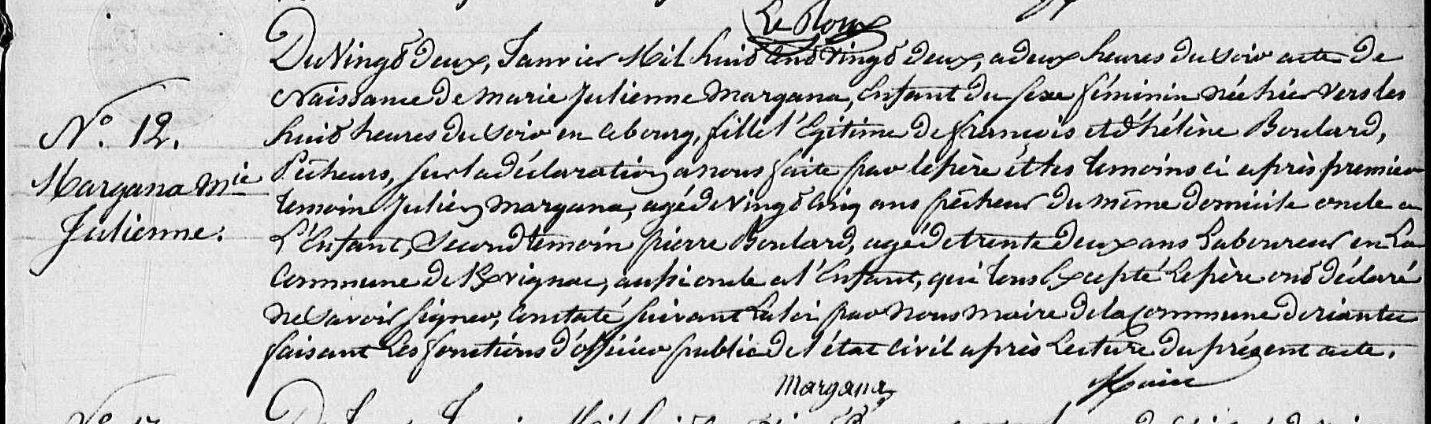 Le Roux
Du Vingt Deux, Janvier Mil huit cent vingt deux, a deux heures du soir acte de
Naissance de marie julienne margana, Enfant du sexe féminin née hier vers les
N°. 12.
huit heures du soir en ce bourg, fille légitime de françois et d'hélène Boulard,
Margana Mie
Pêcheurs, sur la déclaration a nous faite par le père et les temoins ci après premier
Julienne.
temoin julien margana, agé de vingt cinq ans pêcheur du même domicile oncle a
L'Enfant, Second temoin pierre Boulard, agé de trente deux ans Laboureur en La
commune de Kvignac, aussi oncle a l'Enfant, qui tous Excepté le père ont déclaré
ne savoir signer, Constaté suivant La loi par nous maire de la commune de riantec
faisant Les fonctions d'officier public de l'état civil après Lecture du présent acte.
Margana
Maire